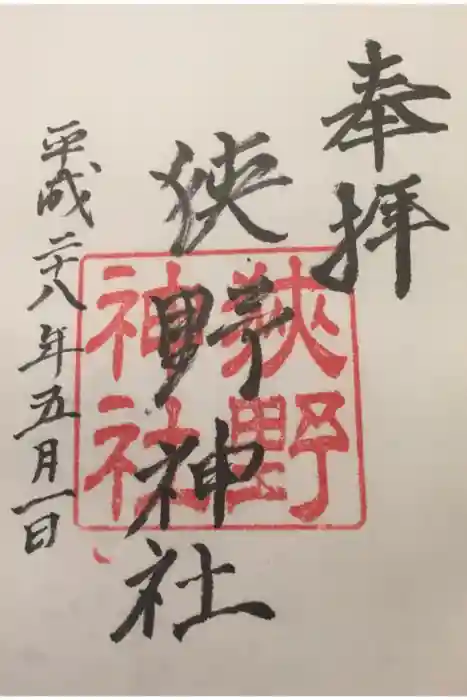 奉拝
狹野神社
狹野
神社
平成二十八年五月一日